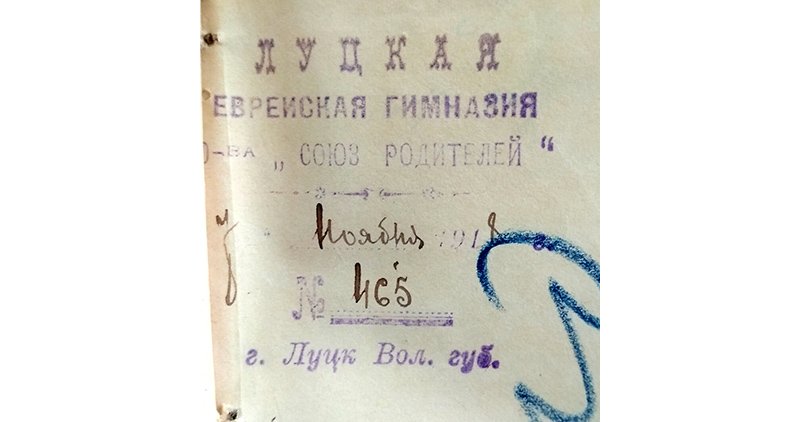 ЛУЦКАЯ
ЕВРЕЙСКАЯ ГИМНАЗИЯ
О-ВА „СОЮЗ РОДИТЕЛЕЙ“
Ноября 1918 г.
№ 465
г. Луцк Вол. губ.